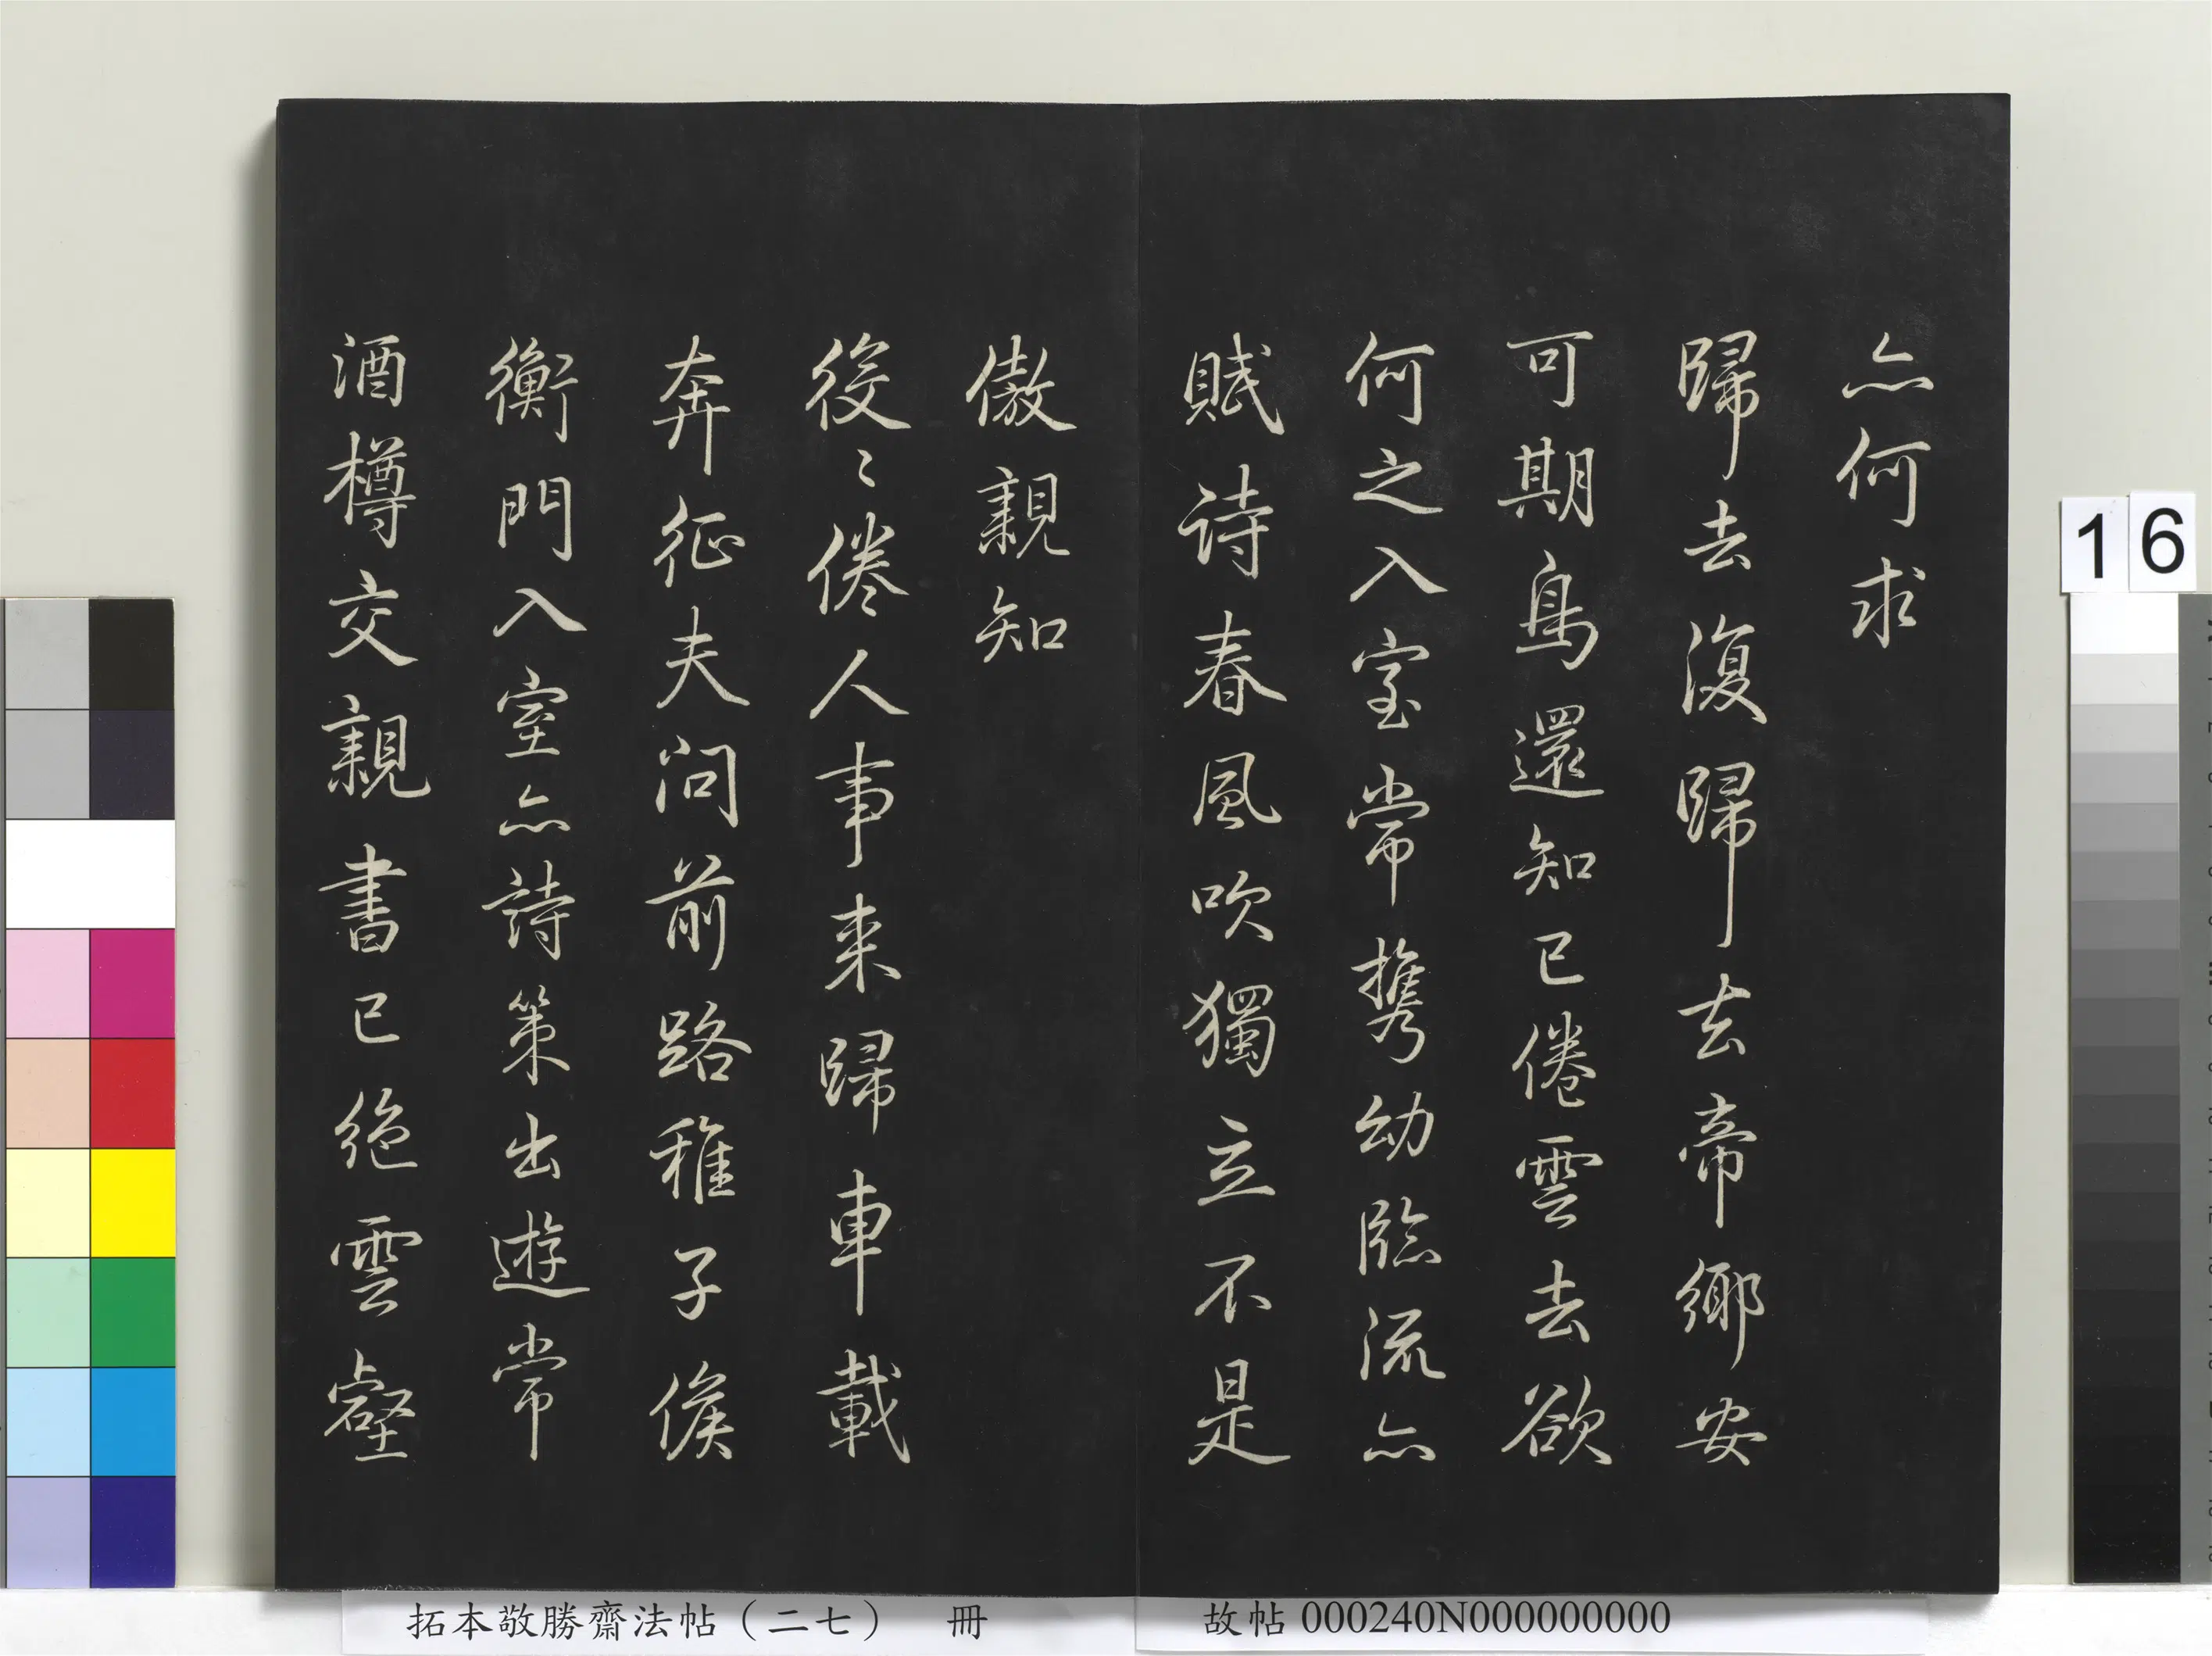 亦何求
歸去復歸去帝鄉安
可期鳥還知已倦雲去欲
何之入室常攜幼臨流亦
賦詩春風吹獨立不是
傲親知
役〻倦人事来歸車載
奔征夫問前路稚子候
衡門入室亦詩策出遊常
酒樽交親書已絕雲壑
16
拓本敬勝齋法帖（二七） 冊
故帖000240N000000000